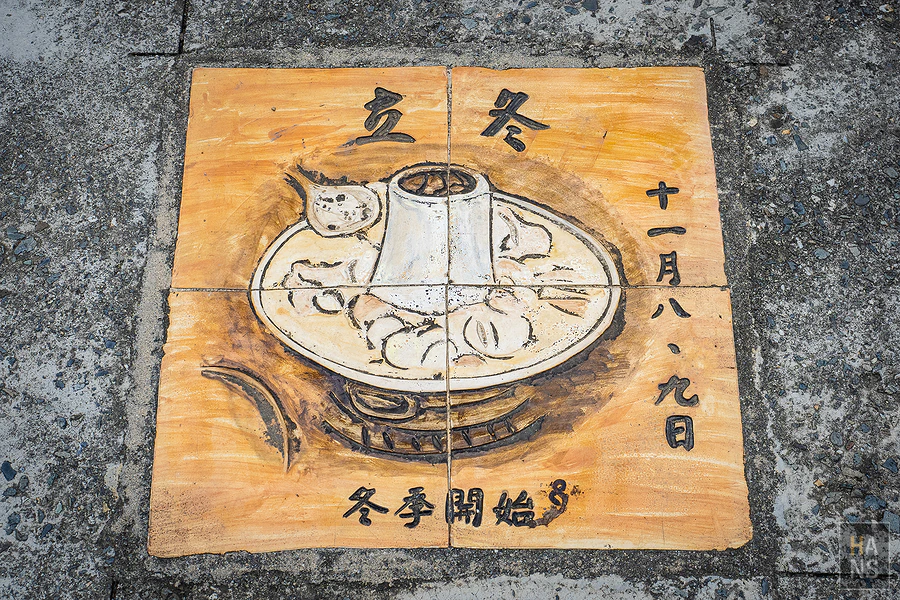 立冬
十一月八、九日
冬季開始
HANS